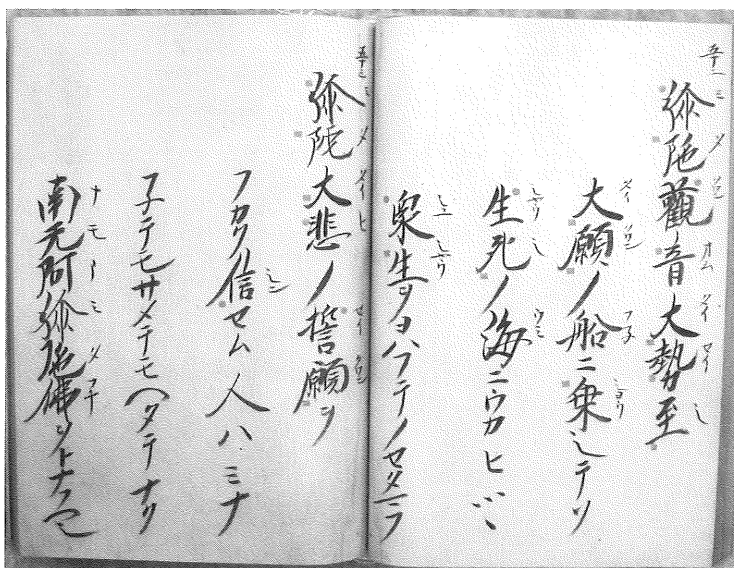 五十二
弥陀觀音大勢至
大願ノ船ニ乗シテソ
生死ノ海ニウカヒツヽ
衆生ヲヨハフテノセタマフ
五十三
弥陀大悲ノ誓願ヲ
フカク信セム人ハミナ
子テモサメテモヘタテナク
南无阿弥陀佛ヲトナフヘシ